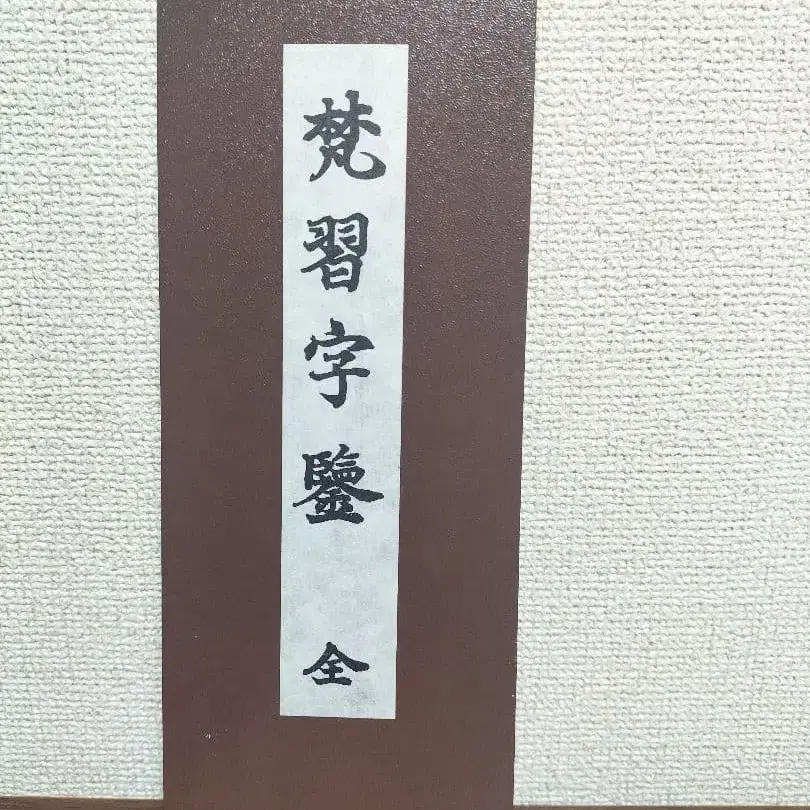 梵習字鑒 全